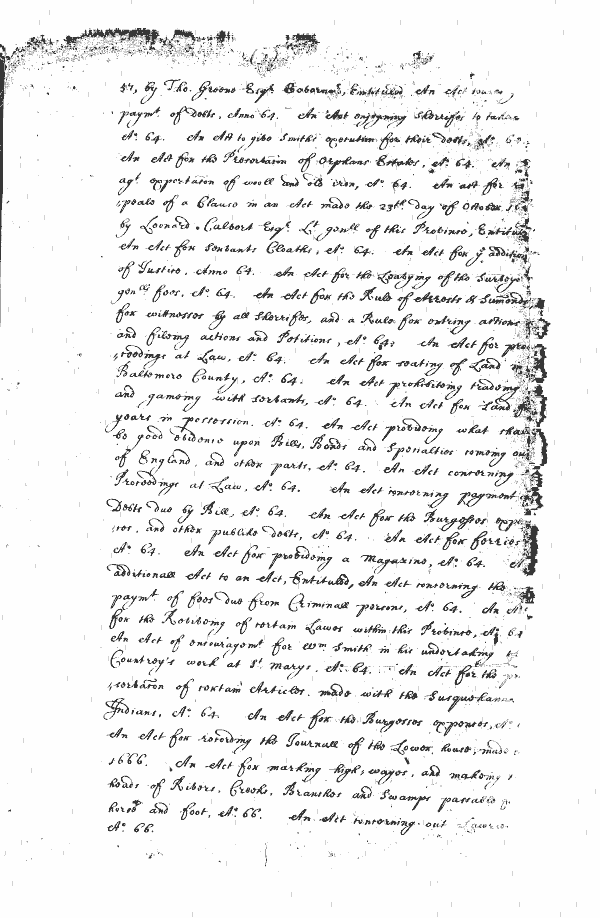 57, by Tho. Greene Esqr. Governor, Entituled An Act
paymt. of debts, Anno 64. An Act enjoyning Sherriffes to take
Ao. 64. An Act to give Smiths execution for their debts, Ao. 64
An Act for the Preservaceon of Orphans Estates, Ao. 64. An
agt. exportaceon of wooll and old iron, Ao. 64. An act for
peale of a Clause in an Act made the 23th. day of October
by Leonard Calvert Esqr. Lt. genll of this Province, Entitul
An Act for Servants Cloaths, Ao. 64. An Act for ye addition
of Justice, Anno 64. An Act for the Leavying of the Survey
genlls fees, Ao. 64. An Act for the Rule of Arrests & Sumonds
for wittnesses by all Sherriffes, and a Rule for entring actions
and fileing actions and Petitions, Ao. 64: An Act for pro
ceedings at Law, Ao. 64. An Act for seating of Land in
Baltemore County, Ao. 64. An Act prohibiteing tradeing
and gameing with servants, Ao. 64. An Act for Land
years in possession. Ao. 64. An Act provideing what shall
be good evidence upon Bills, Bonds and Specialties comeing out
of England, and other parts, Ao. 64. An Act concerning
Proceedings at Law, Ao. 64. An Act concerning payment
Debts due by Bill, Ao. 64. An Act for the Burgesses expe
ces, and other publike debts, Ao. 64. An Act for ferries
Ao. 64. An Act for provideing a Magazine, Ao. 64.
additionall Act to an Act, Entituled, An Act concerning the
paymt. of fees due from Criminall persons, Ao. 64. An A
for the Reviveing of certain Lawes within this Province, Ao. 64
An Act of encouragemt. for Wm Smith in his undertakeing
Countrey's work at St. Marys, Ao. 64. An Act for the pre
servaceon of certain Articles made with the Susquehann
Indians, Ao. 64. An Act for the Burgesses expences, Ao.
An Act for recording the Journall of the Lower house, made
1666. An Act for marking high, wayes, and makeing
heads of Rivers, Creeks, Branches and Swamps passable
horse and foot, Ao. 66. An Act concerning out
Ao. 66.